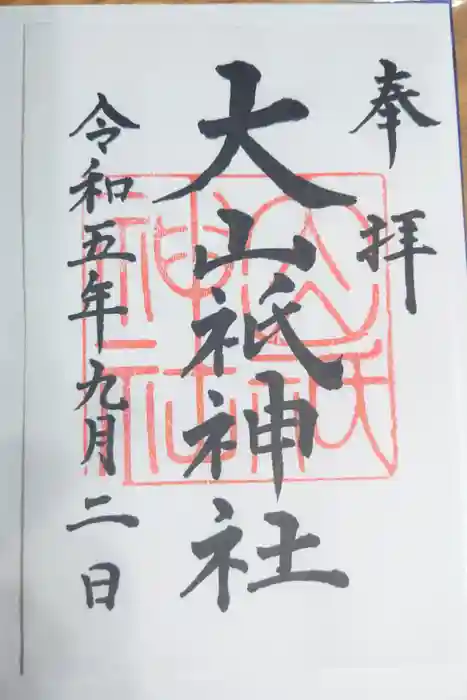 奉拝
大山祇神社
令和五年九月二日